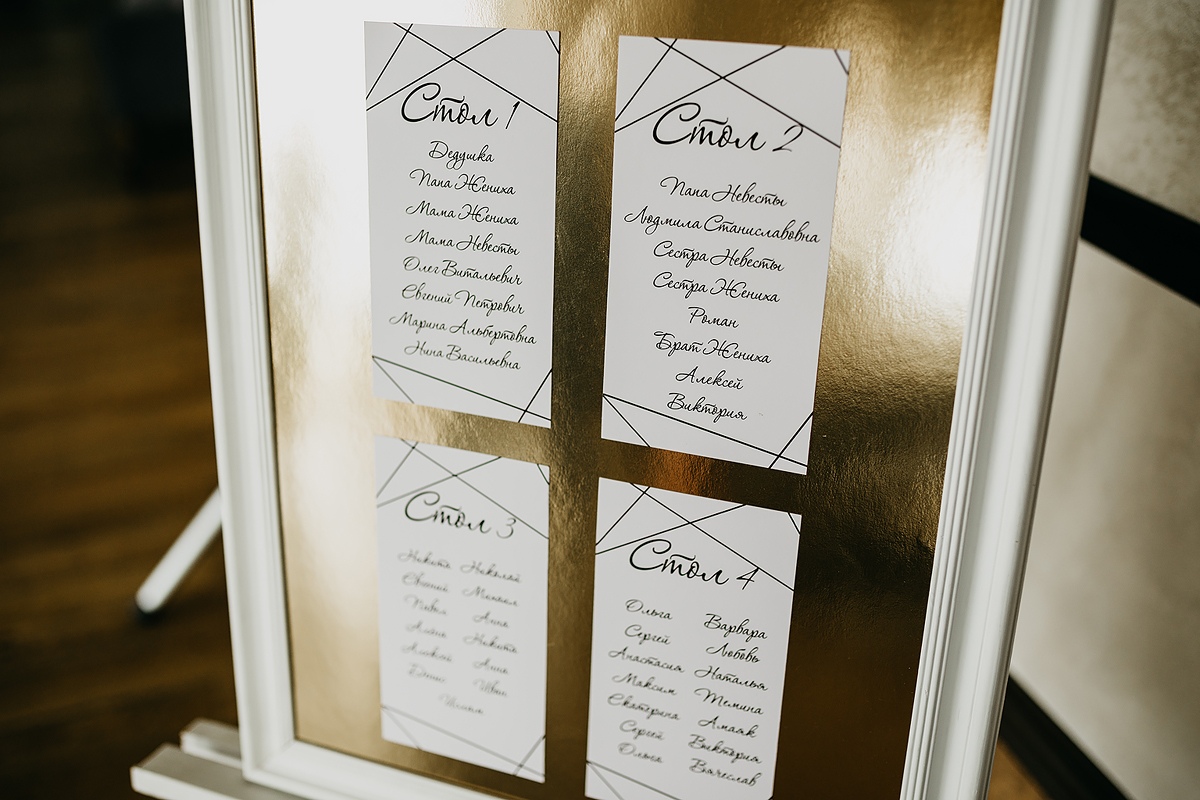 Стол 1
Дедушка
Папа Жениха
Мама Жениха
Мама Невесты
Олег Витальевич
Евгений Петрович
Марина Альбертовна
Нина Васильевна
Стол 2
Папа Невесты
Людмила Станиславовна
Сестра Невесты
Сестра Жениха
Роман
Брат Жениха
Алексей
Виктория
Стол 3
Никита Николай
Евгений Михаил
Павел Анна
Никита
Алексей Анна
Денис Иван
Стол 4
Ольга Варвара
Сергей Любовь
Анастасия Наталья
Максим Темина
Екатерина Амаяк
Сергей Виктория
Ольга Вячеслав